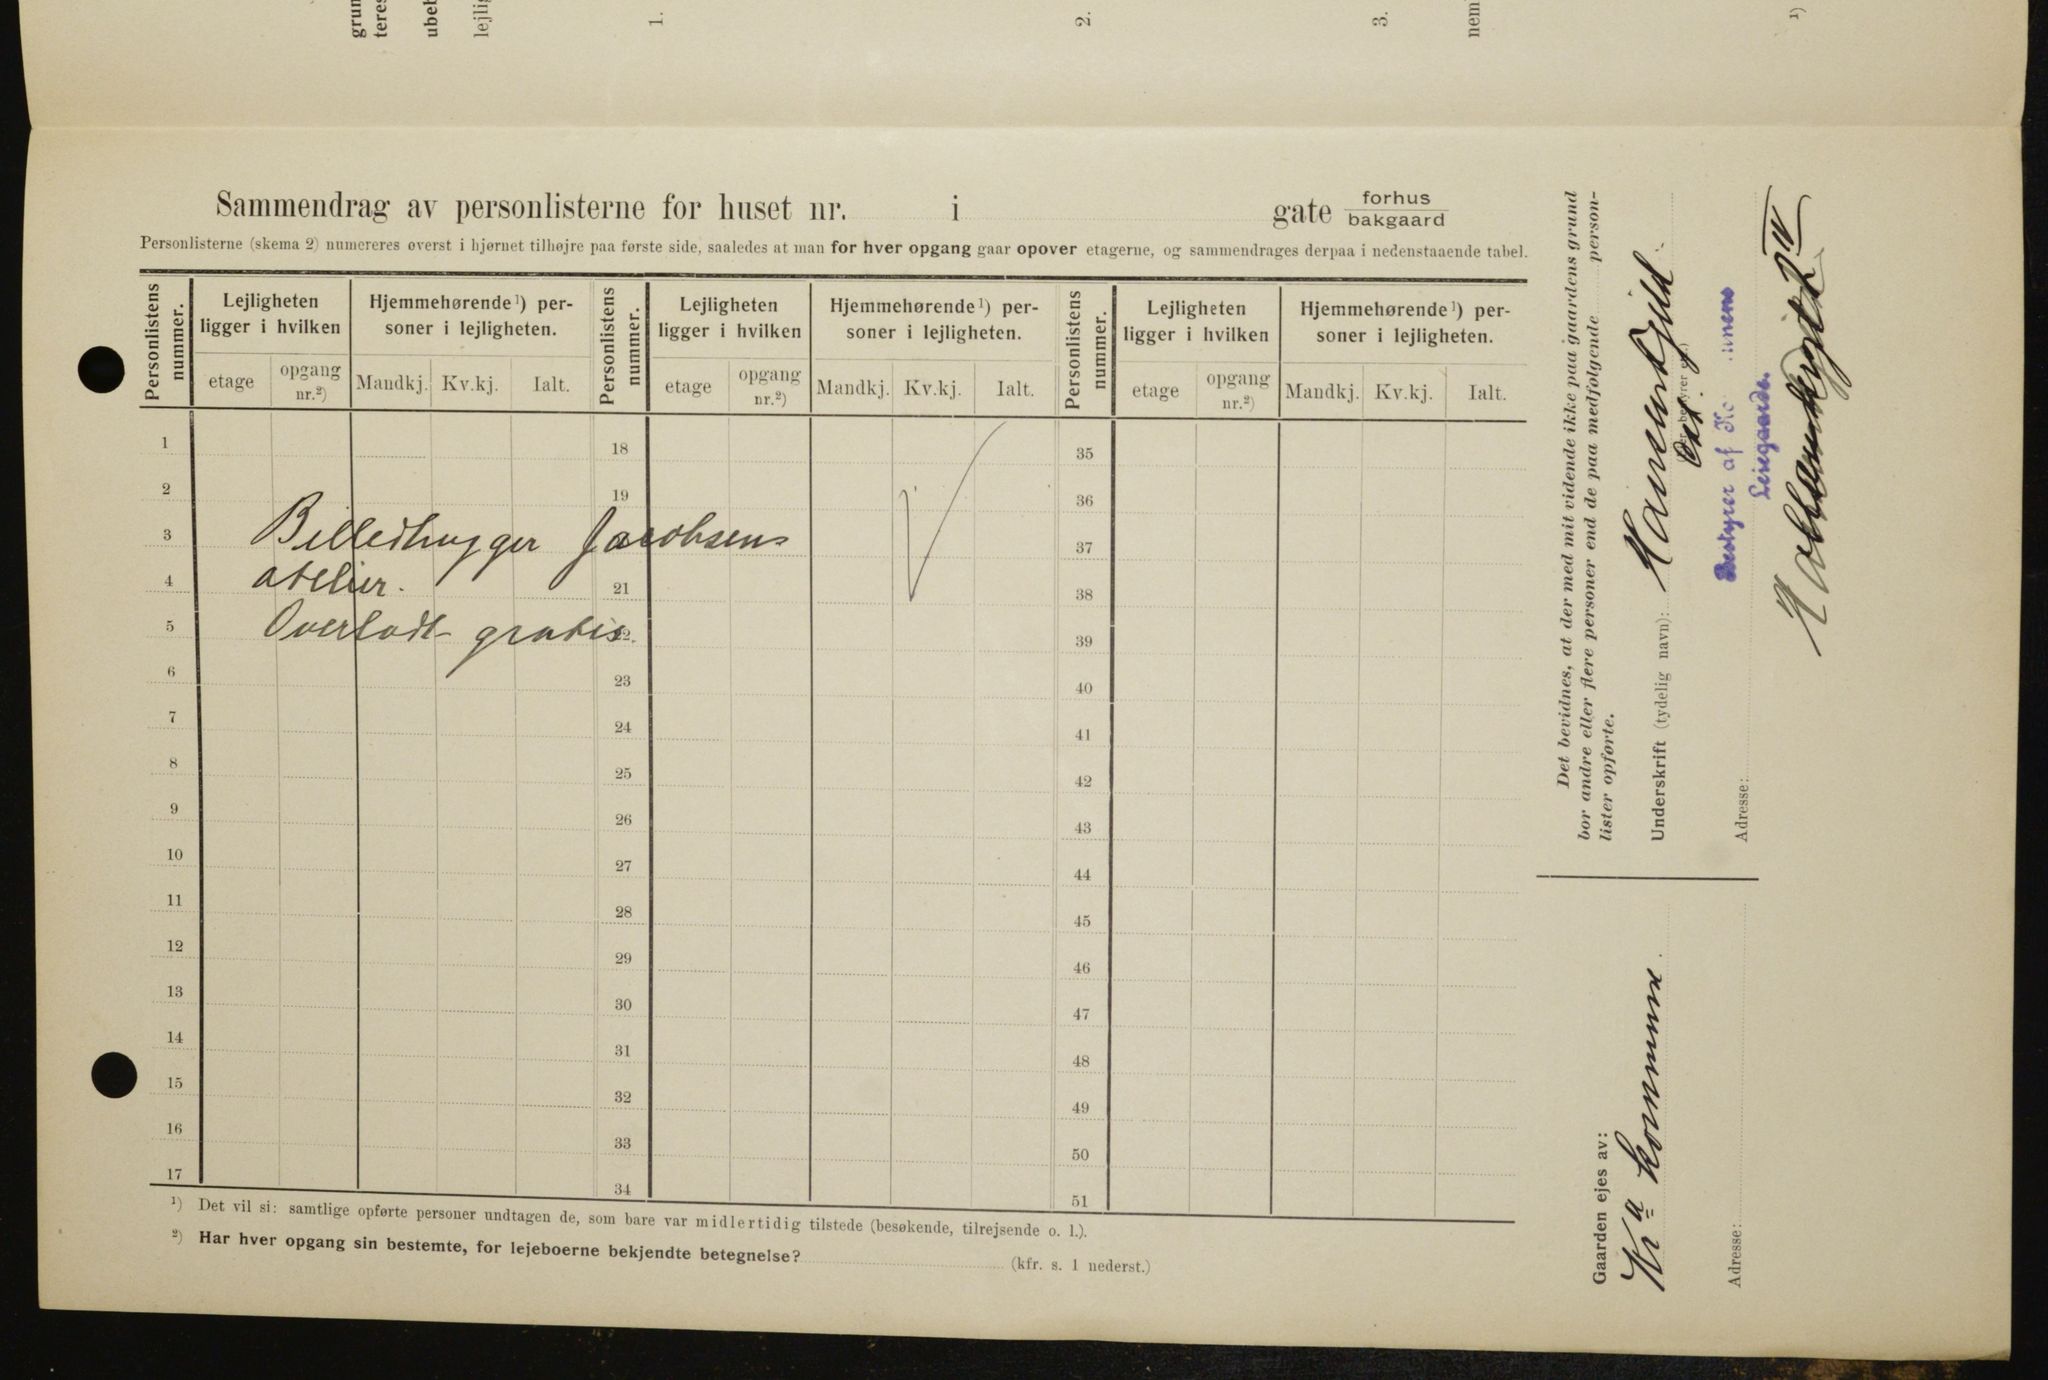 grun
teres
ubeb
lejlig
1.
2.
3.
nem
1)
Sammendrag av personlisterne for huset nr. i gate forhus bakgaard
Personlisterne (skema 2) numereres øverst i hjørnet tilhøjre paa første side, saaledes at man for hver opgang gaar opover etagerne, og sammendrages derpaa i nedenstaaende tabel.
Personlistens nummer. Lejligheten ligger i hvilken Hjemmehørende 1) personer i lejligheten. Personlistens nummer. Lejligheten ligger i hvilken Hjemmehørende 1) personer i lejligheten. Personlistens nummer. Lejligheten ligger i hvilken Hjemmehørende 1) personer i lejligheten.
etage opgang nr.2) Mandkj. Kv.kj. Ialt. etage opgang nr.2) Mandkj. Kv.kj. Ialt. etage opgang nr.2) Mandkj. Kv.kj. Ialt.
1 18 35
2 19 36
3 37
Billedhugger Jacobsens
4 21 38
atelier.
5 39
Overladt gratis
6 23 40
7 24 41
8 25 42
9 26 43
10 27 44
11 28 45
12 29 46
13 30 47
14 31 48
15 32 49
16 33 50
17 34 51
1) Det vil si: samtlige opførte personer undtagen de, som bare var midlertidig tilstede (besøkende, tilrejsende o. l.).
2) Har hver opgang sin bestemte, for lejeboerne bekjendte betegnelse? (kfr. s. 1 nederst.)
Det bevidnes, at der med mit vidende ikke paa gaardens grund
bor andre eller flere personer end de paa medfølgende person-
lister opførte.
Underskrift (tydelig navn):
Bestyrer af
Leiegaarde.
Adresse:
Gaarden ejes av:
Kra kommune.
Adresse: